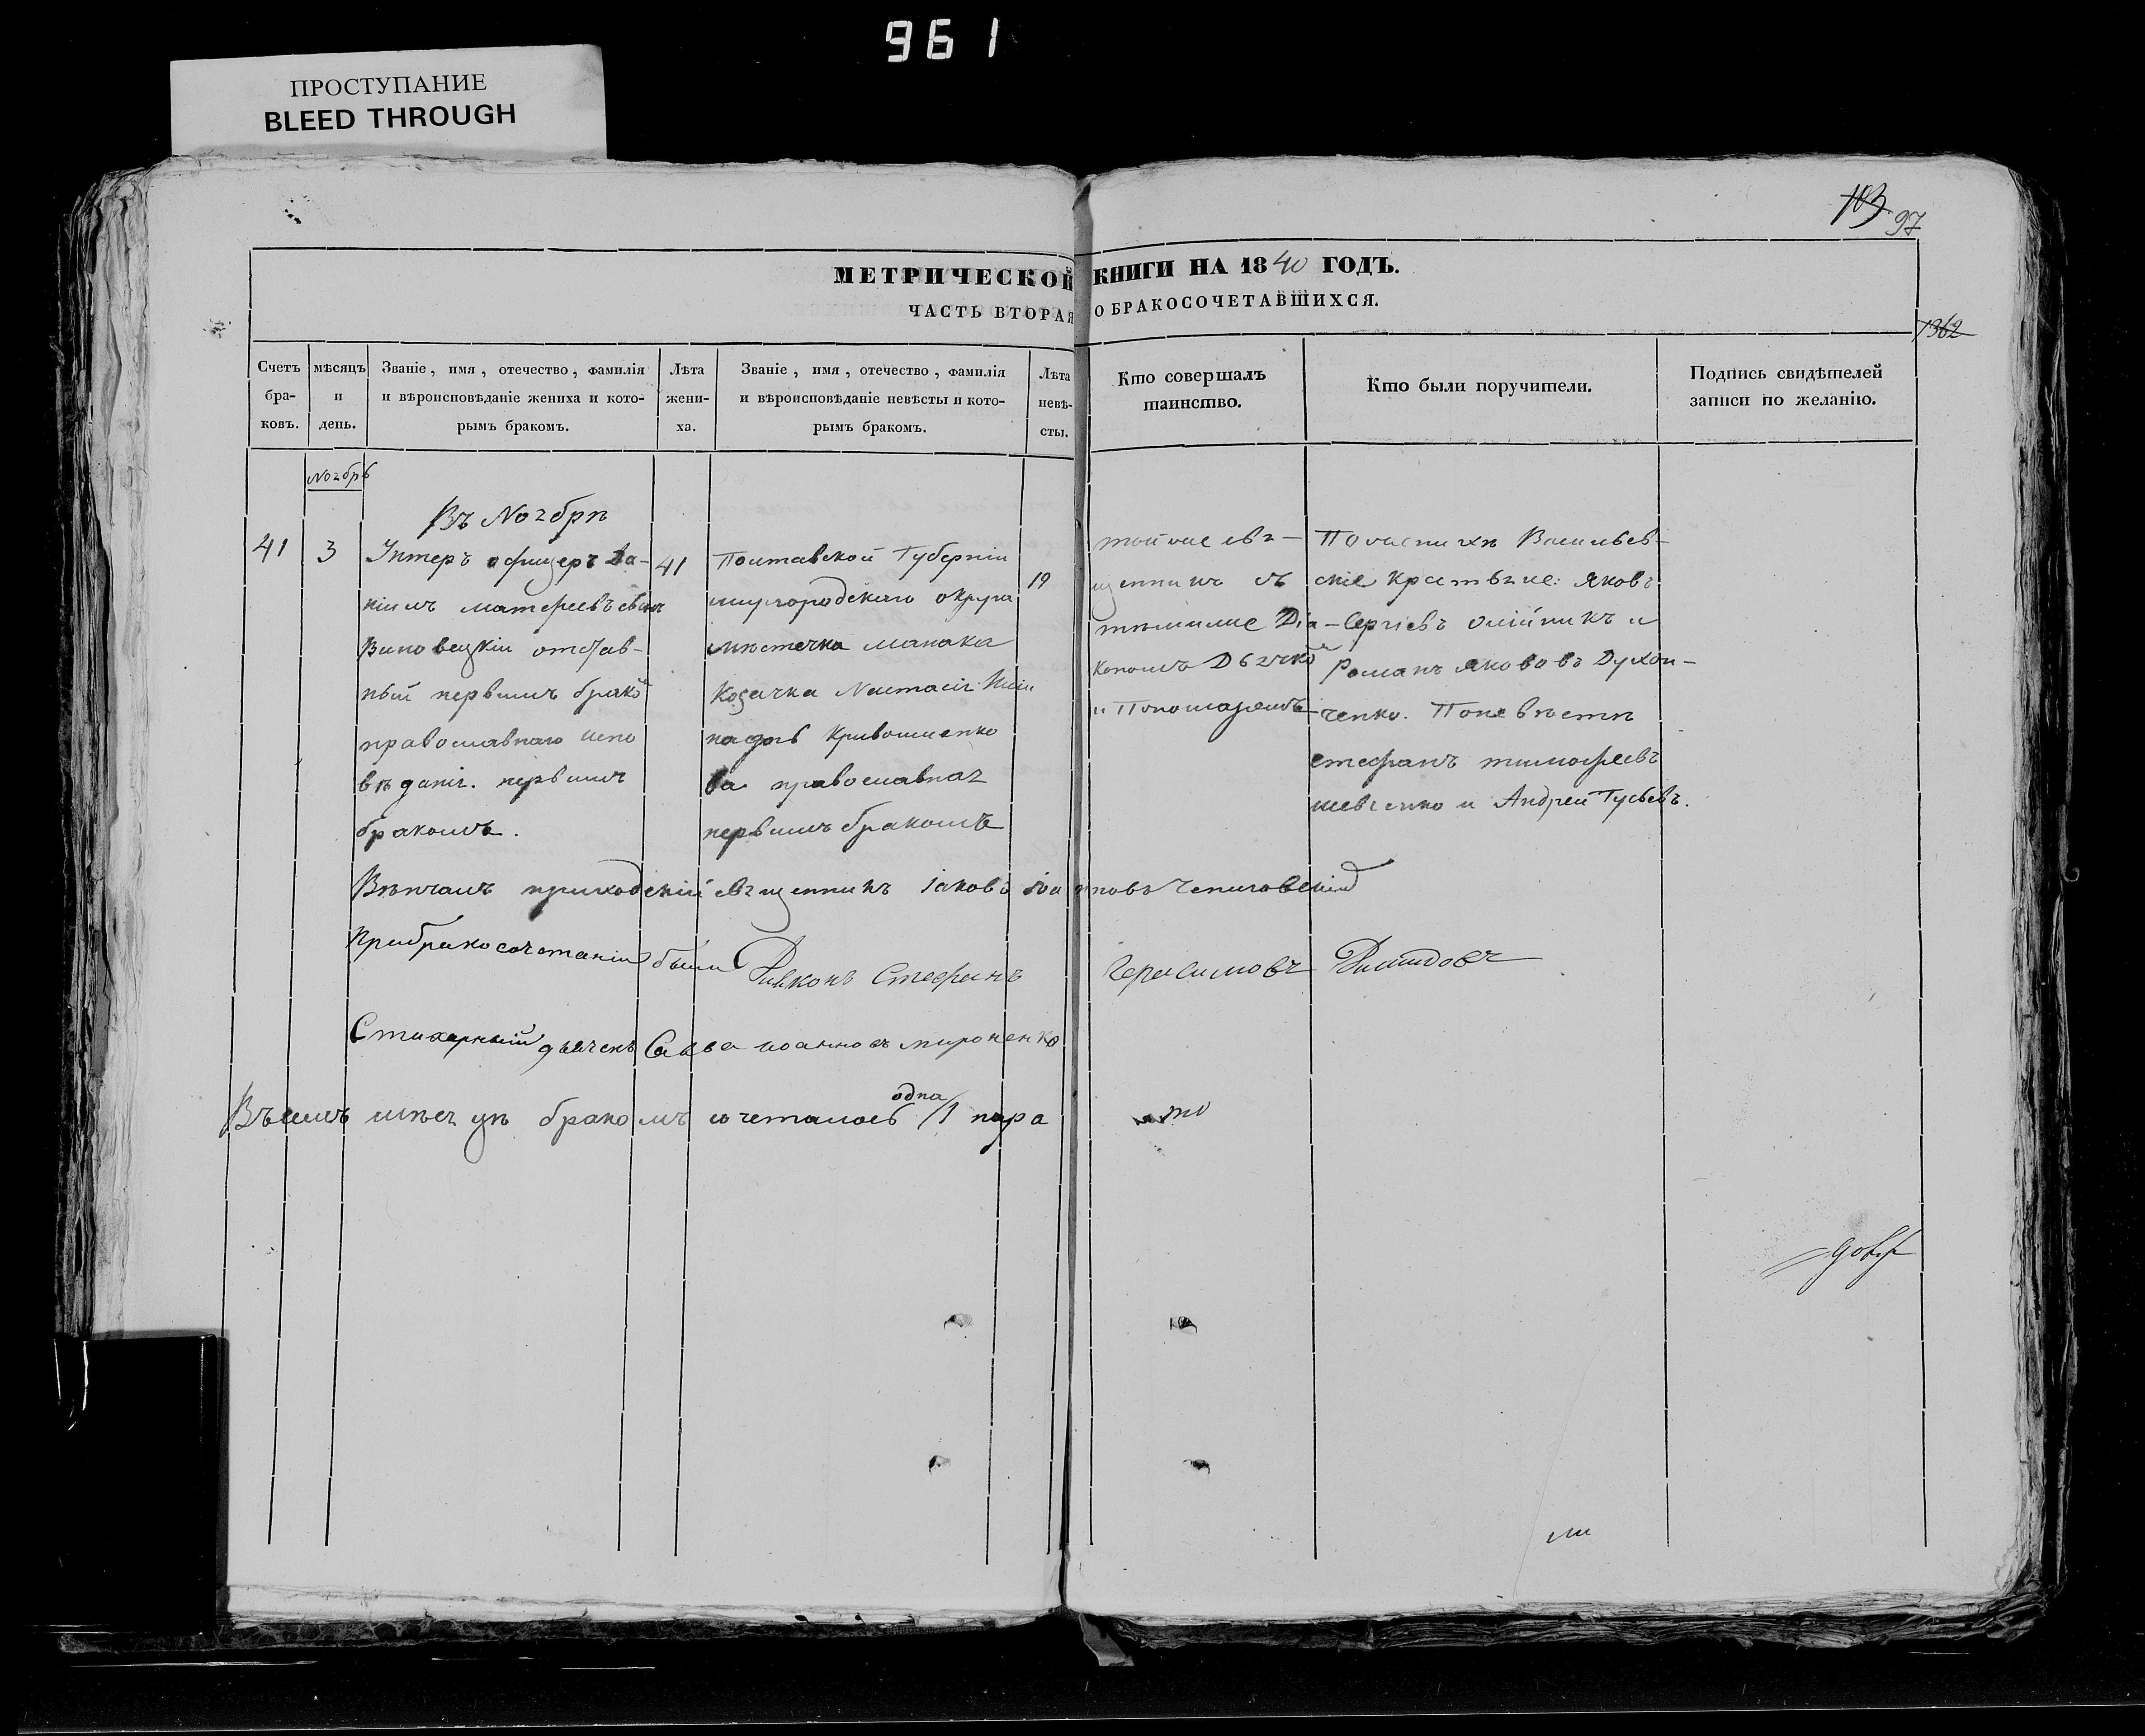 961
ПРОСТУПАНИЕ
BLEED THROUGH
103 97
МЕТРИЧЕСКОЙ КНИГИ НА 1840 ГОДЪ.
ЧАСТЬ ВТОРАЯ О БРАКОСОЧЕТАВШИХСЯ.
1362
Счетъ бра-ковъ.
мѣсяцъ и день.
Званіе, имя, отечество, фамилія
и вѣроисповѣданіе жениха и кото-
рымъ бракомъ.
Лѣта жени-ха.
Званіе, имя, отечество, фамилія
и вѣроисповѣданіе невѣсты и кото-
рымъ бракомъ.
Лѣта невѣ-сты.
Кто совершалъ
таинство.
Кто были поручители.
Подпись свидѣтелей
записи по желанію.
Ноябрь
Въ Ноябрѣ
41
3
Унтеръ офицеръ Да-
ніилъ матфеевъ сынъ
Виновецкій отстав-
ный первымъ брако
православнаго испо
вѣданія. первымъ
бракомъ.
41
Полтавской Губерніи
миргородскаго округа
мѣстечка
Козачка Настасія
Кривошиенко
ва православная
первымъ бракомъ
19
тойже свя-
щенникъ съ
тѣмиже Діа-
кономъ Дьячко
и Пономаремъ
По женихѣ Васильев-
скіе Яковъ
Сергіевъ Олійникъ и
Романъ Яковъ Духон-
ченко. По невѣстѣ
стефанъ тимофеевъ
шевченко и Андрей Гусьевъ.
Вѣнчалъ приходскій священникъ Іаковъ Іоанновъ
Прибракосочетаніи были Діаконъ Стефанъ Герасимовъ Давидовъ
Стихарный дьячекъ Савва иоанновъ мироненко
Въ семъ мѣсяцѣ бракомъ сочеталось одна /1 пара